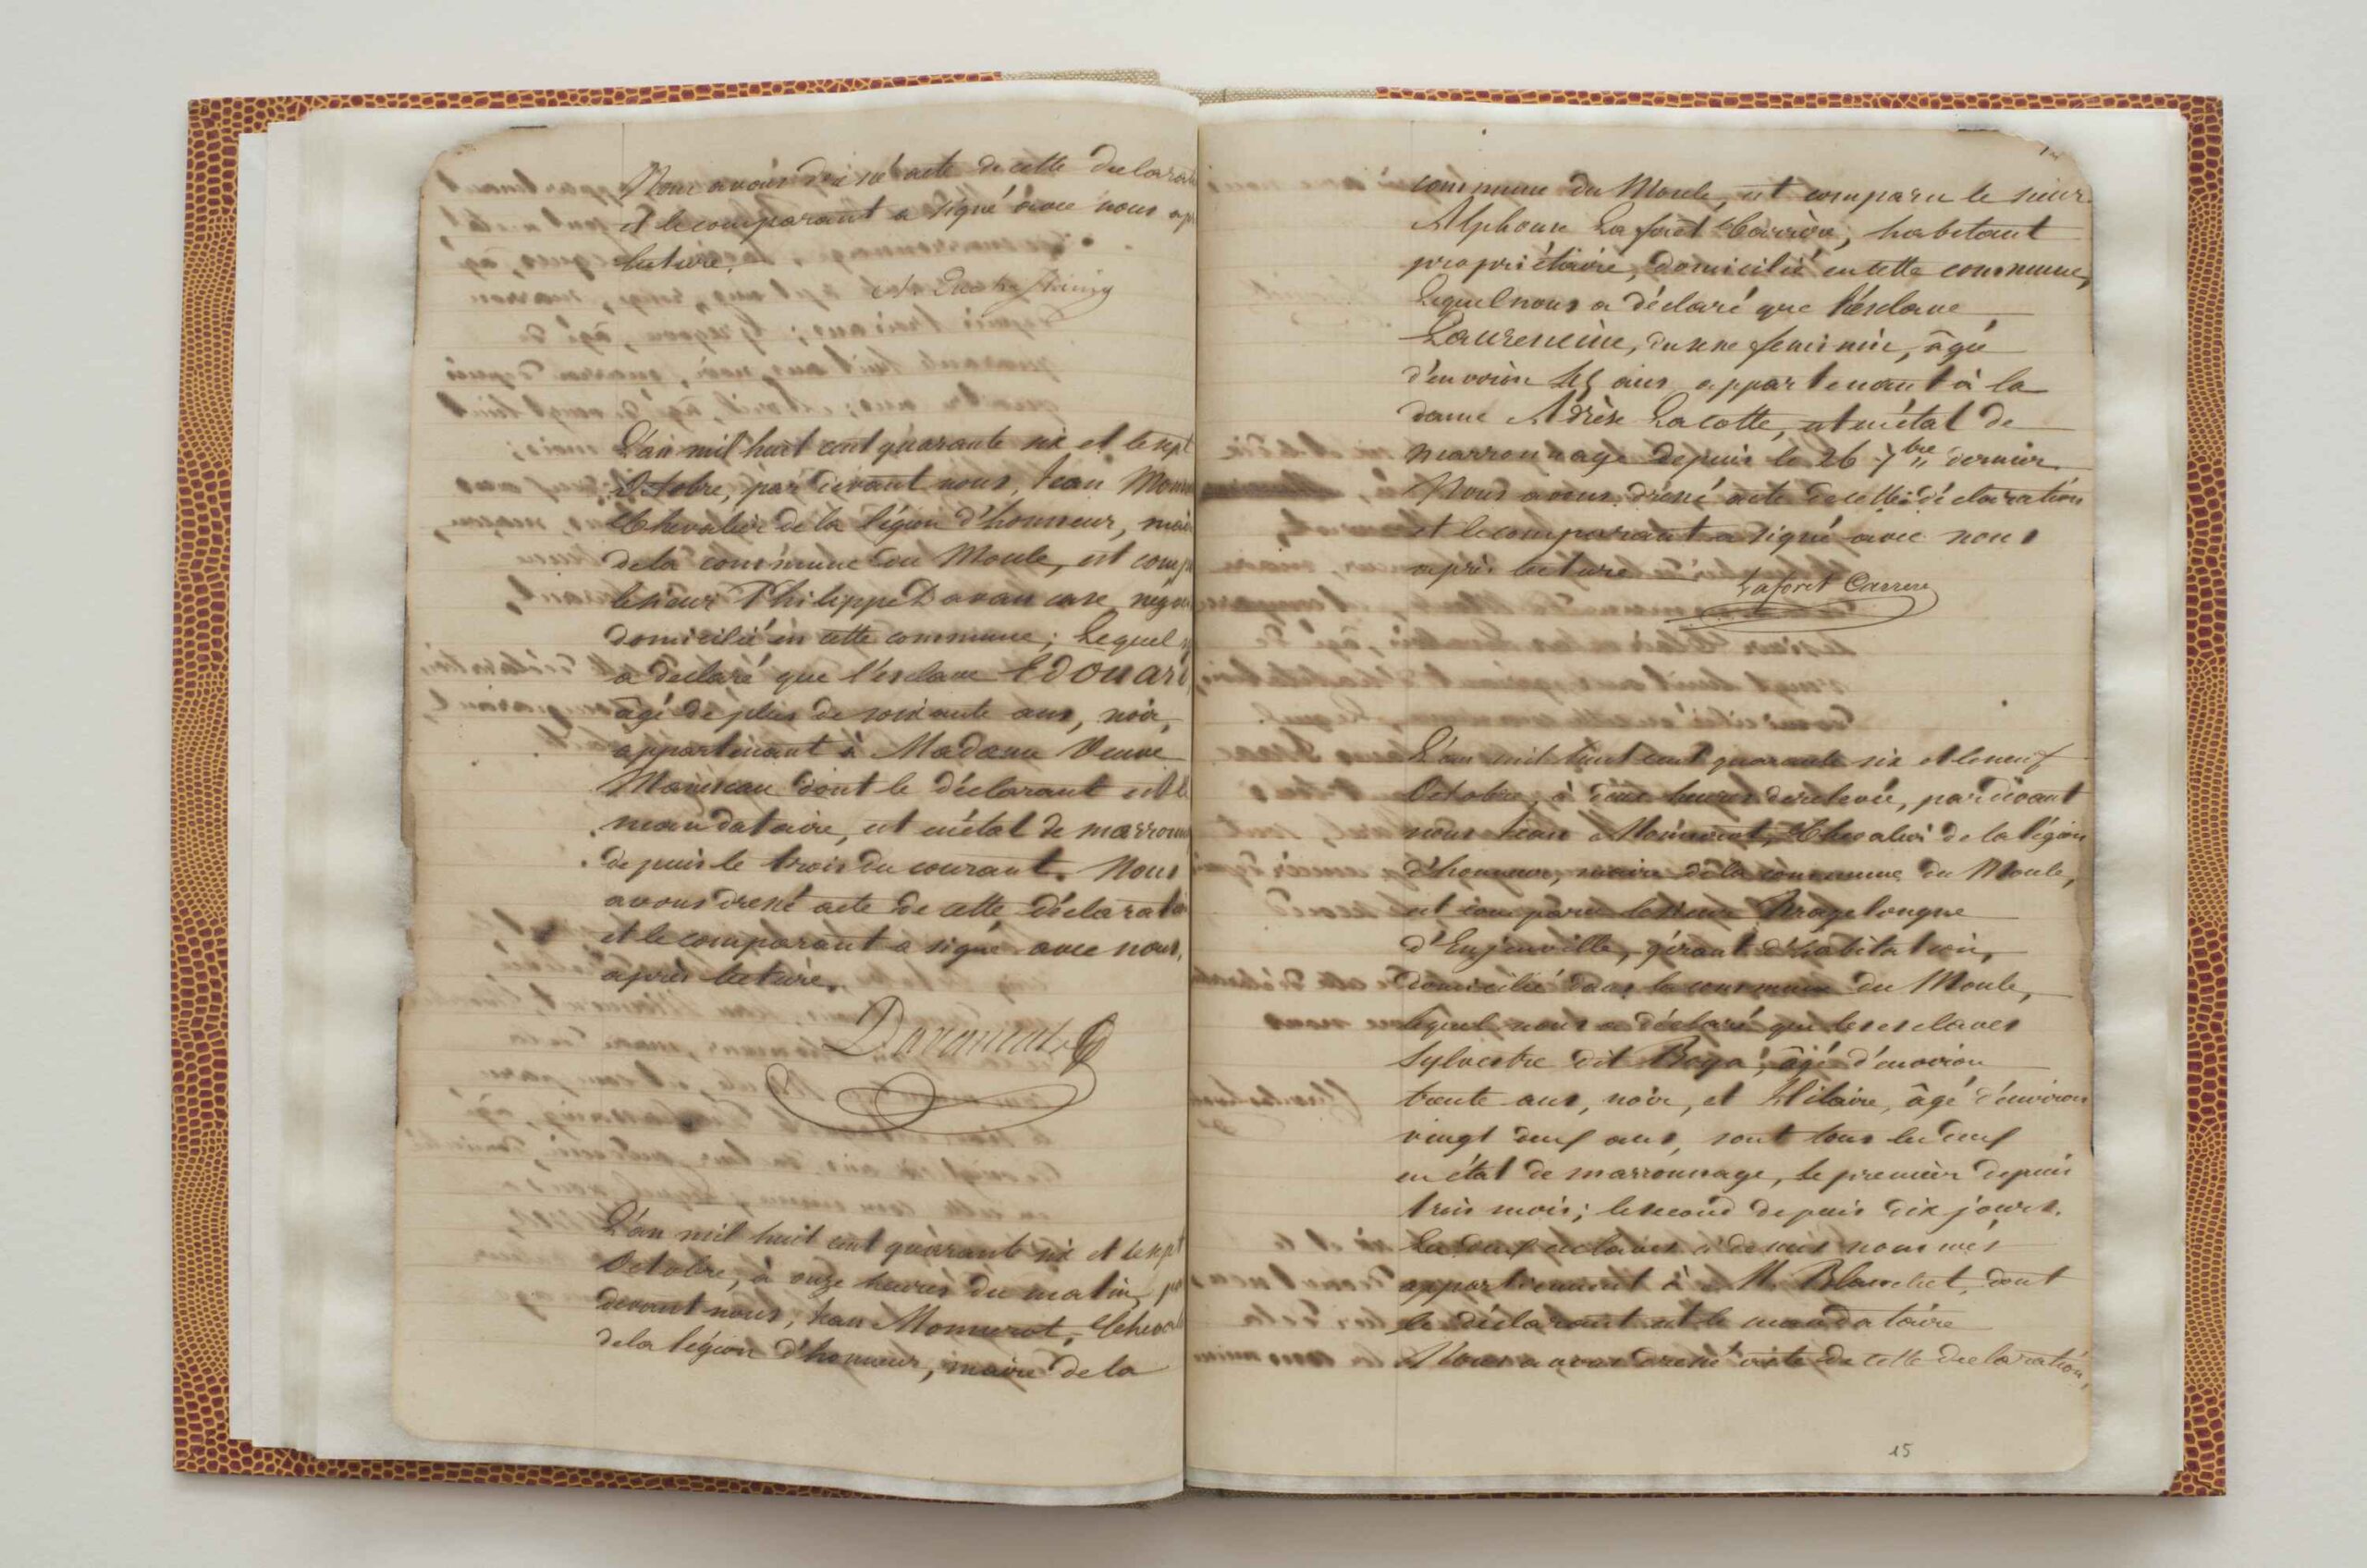 Nous avons dressé acte de cette declarat
et le comparant a signé avec nous ap
lecture.
L'an mil huit cent quarante six et le sept
Octobre, par devant nous, Jean Monn
Chevalier de la légion d'honneur, mair
de la commune du Moule, est comp
le sieur Philippe Davan
domicilié en cette commune; Lequel n
a declaré que l'esclave Edouard
âgé de plus de soixante ans, noir,
appartenant à Madame Veuve
dont le déclarant est l
mandataire, est en état de marronn
depuis le trois du courant. Nous
avons dressé acte de cette déclaratio
et le comparant a signé avec nous,
après lecture.
L'an mil huit cent quarante six et le sept
Octobre, à onze heures du matin, p
devant nous, Jean Momerot, Cheval
de la légion d'honneur, maire de la
commune du Moule, est comparu le sieur
Alphonse Laforêt Carrère, habitant
propriétaire, domicilié en cette commune,
Lequel nous a déclaré que l'ésclave
Laurencine, du sexe feminin, âgée
d'environ ans, appartenant à la
dame Adrèse Lacotte, est en état de
marronnage depuis le 26 7bre dernier.
Nous avons dressé acte de cette déclaration
et le comparant a signé avec nous
après lecture
Laforêt Carrere
L'an mil huit cent quarante six et le neuf
Octobre, à heures de relevée, par devant
nous Jean Momerot, Chevalier de la légion
d'honneur, maire de la commune du Moule,
est comparu le sieur Bragelongne
d'Enjenville, gérant d'habitation,
domicilié dans la commune du Moule,
lequel nous a déclaré que les esclaves
Sylvestre dit Boya, âgé d'environ
trente ans, noir, et Hilaire, âgé d'environ
vingt deux ans, sont tous les deux
en état de marronnage, le premier depuis
trois mois; le second depuis dix jours.
Les deux esclaves ci dessus nommés
appartiennent à M. Blanchet, dont
le déclarant est le mandataire
Nous avons dressé acte de cette declaration,
15